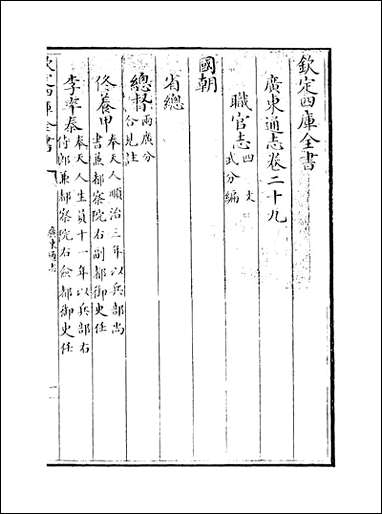 欽定四庫全書
廣東通志卷二十九
職官志四 文武分編
國朝
省總
總督 兩廣分合見注
佟養甲 奉天人順治三年以兵部尚書兼都察院右副都御史任
李率泰 奉天人生員十一年以兵部右侍郎兼都察院右僉都御史任
欽定四庫全書
廣東通志